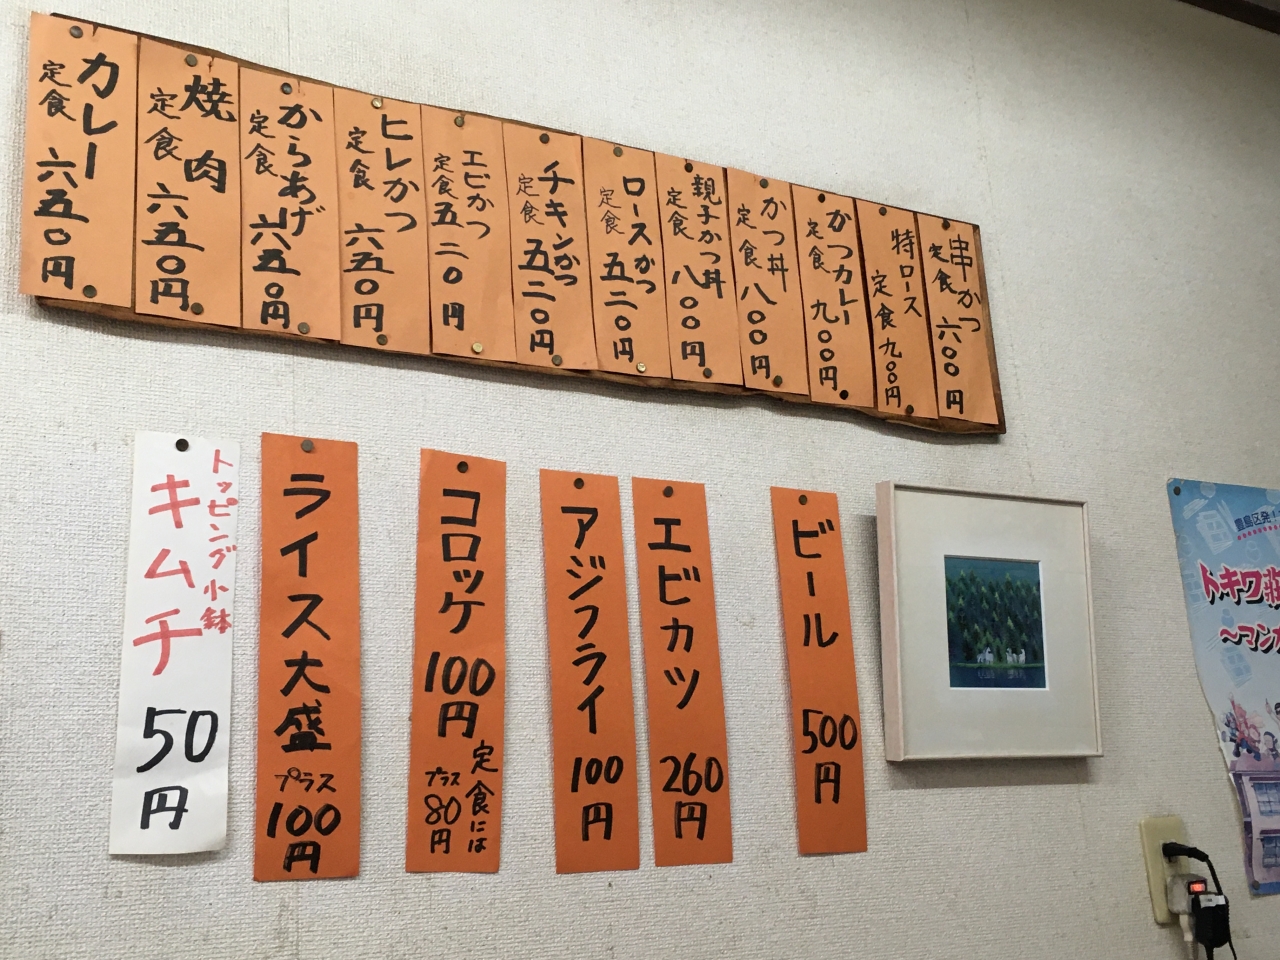 串かつ
定食 六〇〇円
特ロース
定食 九〇〇円
かつカレー
定食 九〇〇円
かつ丼
定食 八〇〇円
親子かつ丼
定食 八〇〇円
ロースかつ
定食 五二〇円
チキンかつ
定食 五二〇円
エビかつ
定食 五二〇円
ヒレかつ
定食 六五〇円
からあげ
定食 六五〇円
焼肉
定食 六五〇円
カレー
定食 六五〇円
ビール 500円
エビカツ 260円
アジフライ 100円
コロッケ 100円
定食には
プラス80円
ライス大盛
プラス100円
トッピング小鉢
キムチ 50円
豊島区発!
トキワ荘
～マンガ